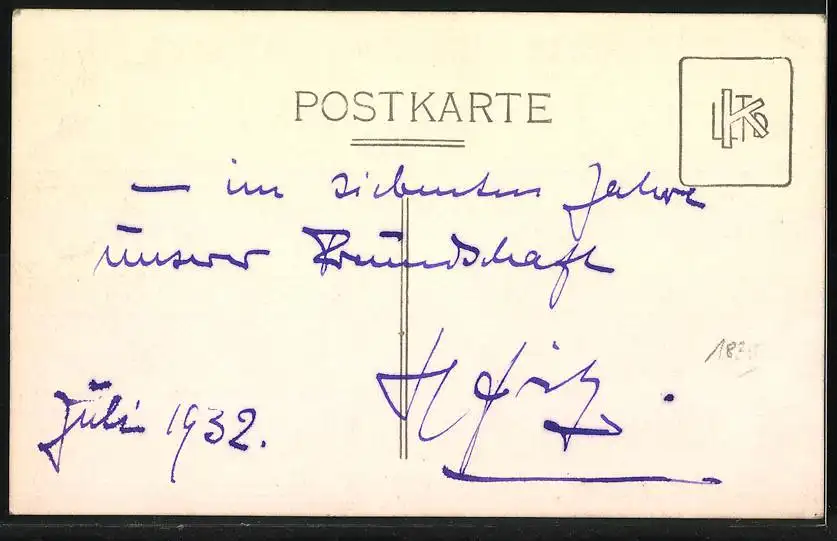 POSTKARTE
LTD
— im siebenten Jahre
unserer Freundschaft
Juli 1932.